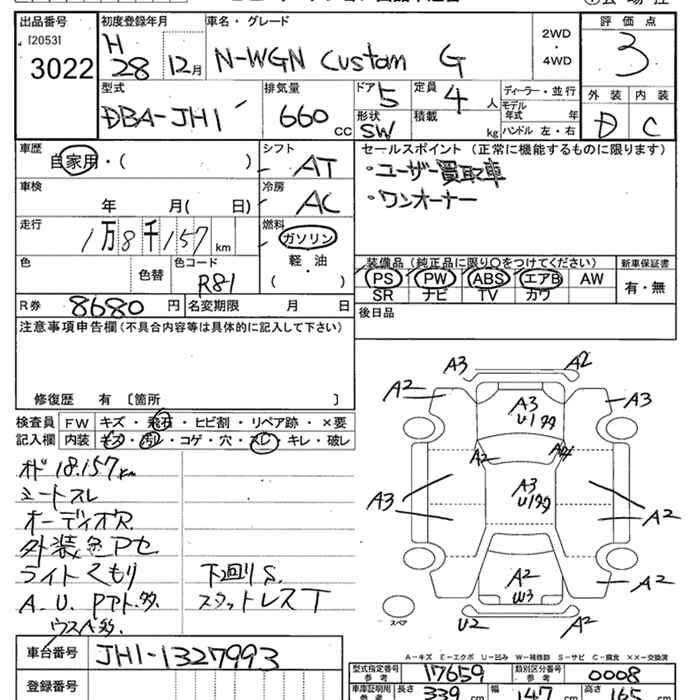 出品番号 初度登録年月 車名・グレード 評価点
[2053] H
3022 28 12月 N-WGN Custom G 2WD・4WD 3
型式 排気量 ドア 定員 ディーラー・並行 外装 内装
DBA-JH1 660cc 5 4人 モデル年式 年 D C
形状 積載 ハンドル 左・右
SW kg
車歴 シフト セールスポイント(正常に機能するものに限ります)
自家用・( ) AT ・ユーザー買取車
車検 冷房 ・ワンオーナー
年 月( 日) AC
走行 燃料
1万8千157km ガソリン
色 色替 色コード 軽・油 装備品(純正品に限り○をつけてください) 新車保証書
R81 ( ) PS PW ABS エアB AW 有・無
SR ナビ TV カワ
R券 8680円 名変期限 月 日 後日品
注意事項申告欄(不具合内容等は具体的に記入して下さい)
修復歴 有 〔箇所 〕
検査員 FW キズ・飛石・ヒビ割・リペア跡・×要
記入欄 内装 キズ・汚レ・コゲ・穴・スレ・キレ・破レ
オド 18.157km
シートスレ
オーディオR
外装色アセ
ライトくもり 下回りS
A.U.Pアト多 スタットレスT
ウスベ多
A3 A2
A2 A3 A3
U1 99
A2 A4
A3 A3 A2
U1 99
A2 A2
W3
スペア U2 A2
A-キズ E-エクボ U-凹み W-補修跡 S-サビ C-腐食 ××-交換済
車台番号 JH1-1327993 型式指定番号 参考 17659 類別区分番号 参考 0008
登録番号 車庫証明用 参考 長さ 339cm 幅 147cm 高さ 165cm